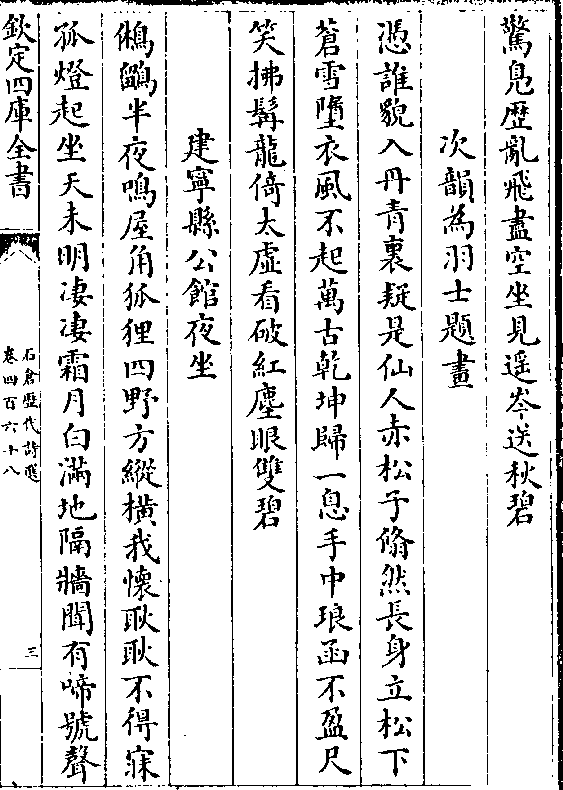 驚鳧歴亂飛盡空坐見遥岑送秋碧
次韻為羽士題畫
憑誰貌入丹青裏疑是仙人赤松子翛然長身立松下
蒼雪墮衣風不起萬古乾坤歸一息手中琅函不盈尺
笑拂髯龍倚太虚看破紅塵眼雙碧
建寧縣公館夜坐
鵂鶹半夜鳴屋角狐狸四野方縱横我懷耿耿不得寐
孤燈起坐天未明凄凄霜月白滿地隔牆聞有啼號聲
欽定四庫全書
石倉歴代詩選
卷四百六十八
三